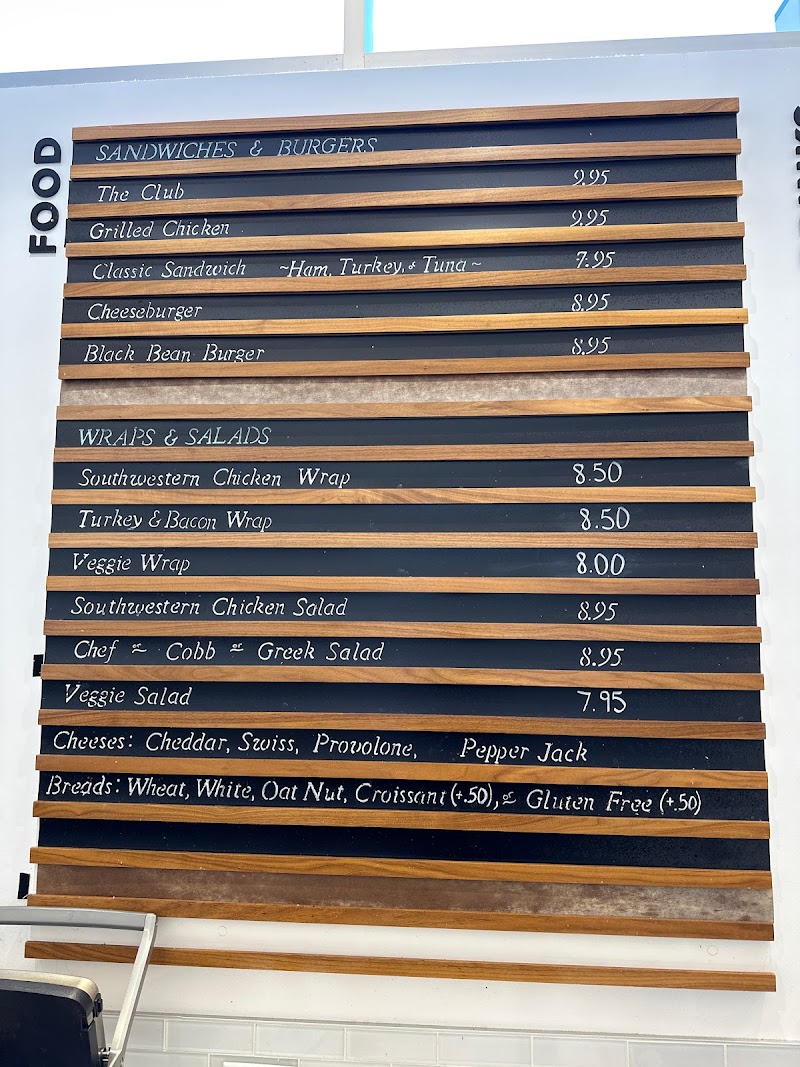 FOOD
SANDWICHES & BURGERS
The Club 9.95
Grilled Chicken 9.95
Classic Sandwich ~Ham, Turkey, & Tuna~ 7.95
Cheeseburger 8.95
Black Bean Burger 8.95
WRAPS & SALADS
Southwestern Chicken Wrap 8.50
Turkey & Bacon Wrap 8.50
Veggie Wrap 8.00
Southwestern Chicken Salad 8.95
Chef or Cobb or Greek Salad 8.95
Veggie Salad 7.95
Cheeses: Cheddar, Swiss, Provolone, Pepper Jack
Breads: Wheat, White, Oat Nut, Croissant (+.50), or Gluten Free (+.50)